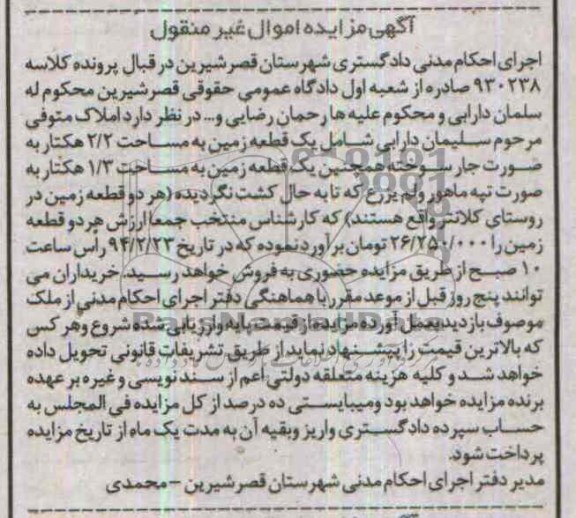 آگهی مزایده اموال غیر منقول
اجرای احکام مدنی دادگستری شهرستان قصرشیرین در قبال پرونده کلاسه
۹۳۰۲۳۸ صادره از شعبه اول دادگاه عمومی حقوقی قصرشیرین محکوم له
سلمان دارابی و محکوم علیه ها رحمان رضایی و... در نظر دارد املاک متوفی
مرحوم سلیمان دارابی شامل یک قطعه زمین به مساحت ۲/۲ هکتار به
صورت جار سوخته همچنین یک قطعه زمین به مساحت ۱/۳ هکتار به
صورت تپه ماهور ولم یزرع که تا به حال کشت نگردیده (هر دو قطعه زمین در
روستای کلانتر واقع هستند) که کارشناس منتخب جمعا ارزش هر دو قطعه
زمین را ۲۶/۲۵۰/۰۰۰ تومان برآورد نموده که در تاریخ ۹۴/۲/۲۳ رأس ساعت
۱۰ صبح از طریق مزایده حضوری به فروش خواهد رسید. خریداران می
توانند پنج روز قبل از موعد مقرر با هماهنگی دفتر اجرای احکام مدنی از ملک
موصوف بازدید بعمل آورده مزایده از قیمت پایه و ارزیابی شده شروع و هر کس
که بالاترین قیمت را پیشنهاد نماید از طریق تشریفات قانونی تحویل داده
خواهد شد و کلیه هزینه متعلقه دولتی اعم از سند نویسی و غیره بر عهده
برنده مزایده خواهد بود ومیبایستی ده درصد از کل مزایده فی المجلس به
حساب سپرده دادگستری واریز وبقیه آن به مدت یک ماه از تاریخ مزایده
پرداخت شود.
مدیر دفتر اجرای احکام مدنی شهرستان قصرشیرین – محمدی